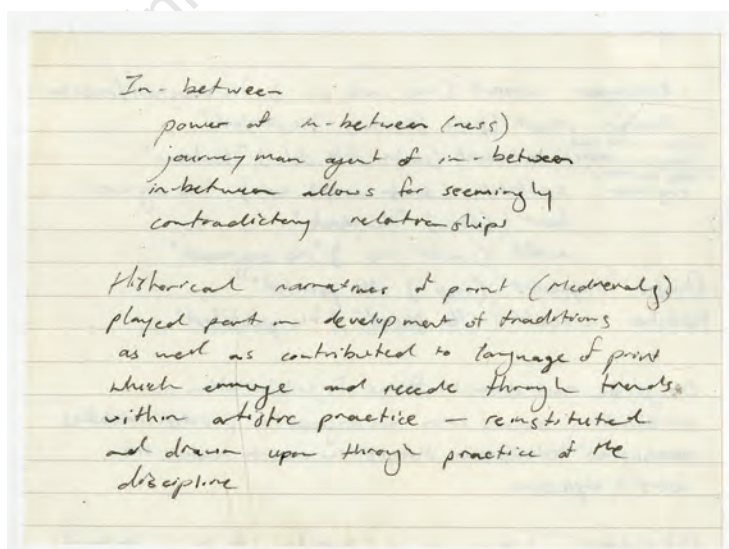 In-between
power of in-between (ness)
journeyman agent of in-between
in-between allows for seemingly
contradictory relationships
Historical narratives of print (Medievaly)
played part in development of traditions
as well as contributed to language of print
which emmerge and recede through trends
within artistic practice — reinstituted
and drawn upon through practice of the
discipline